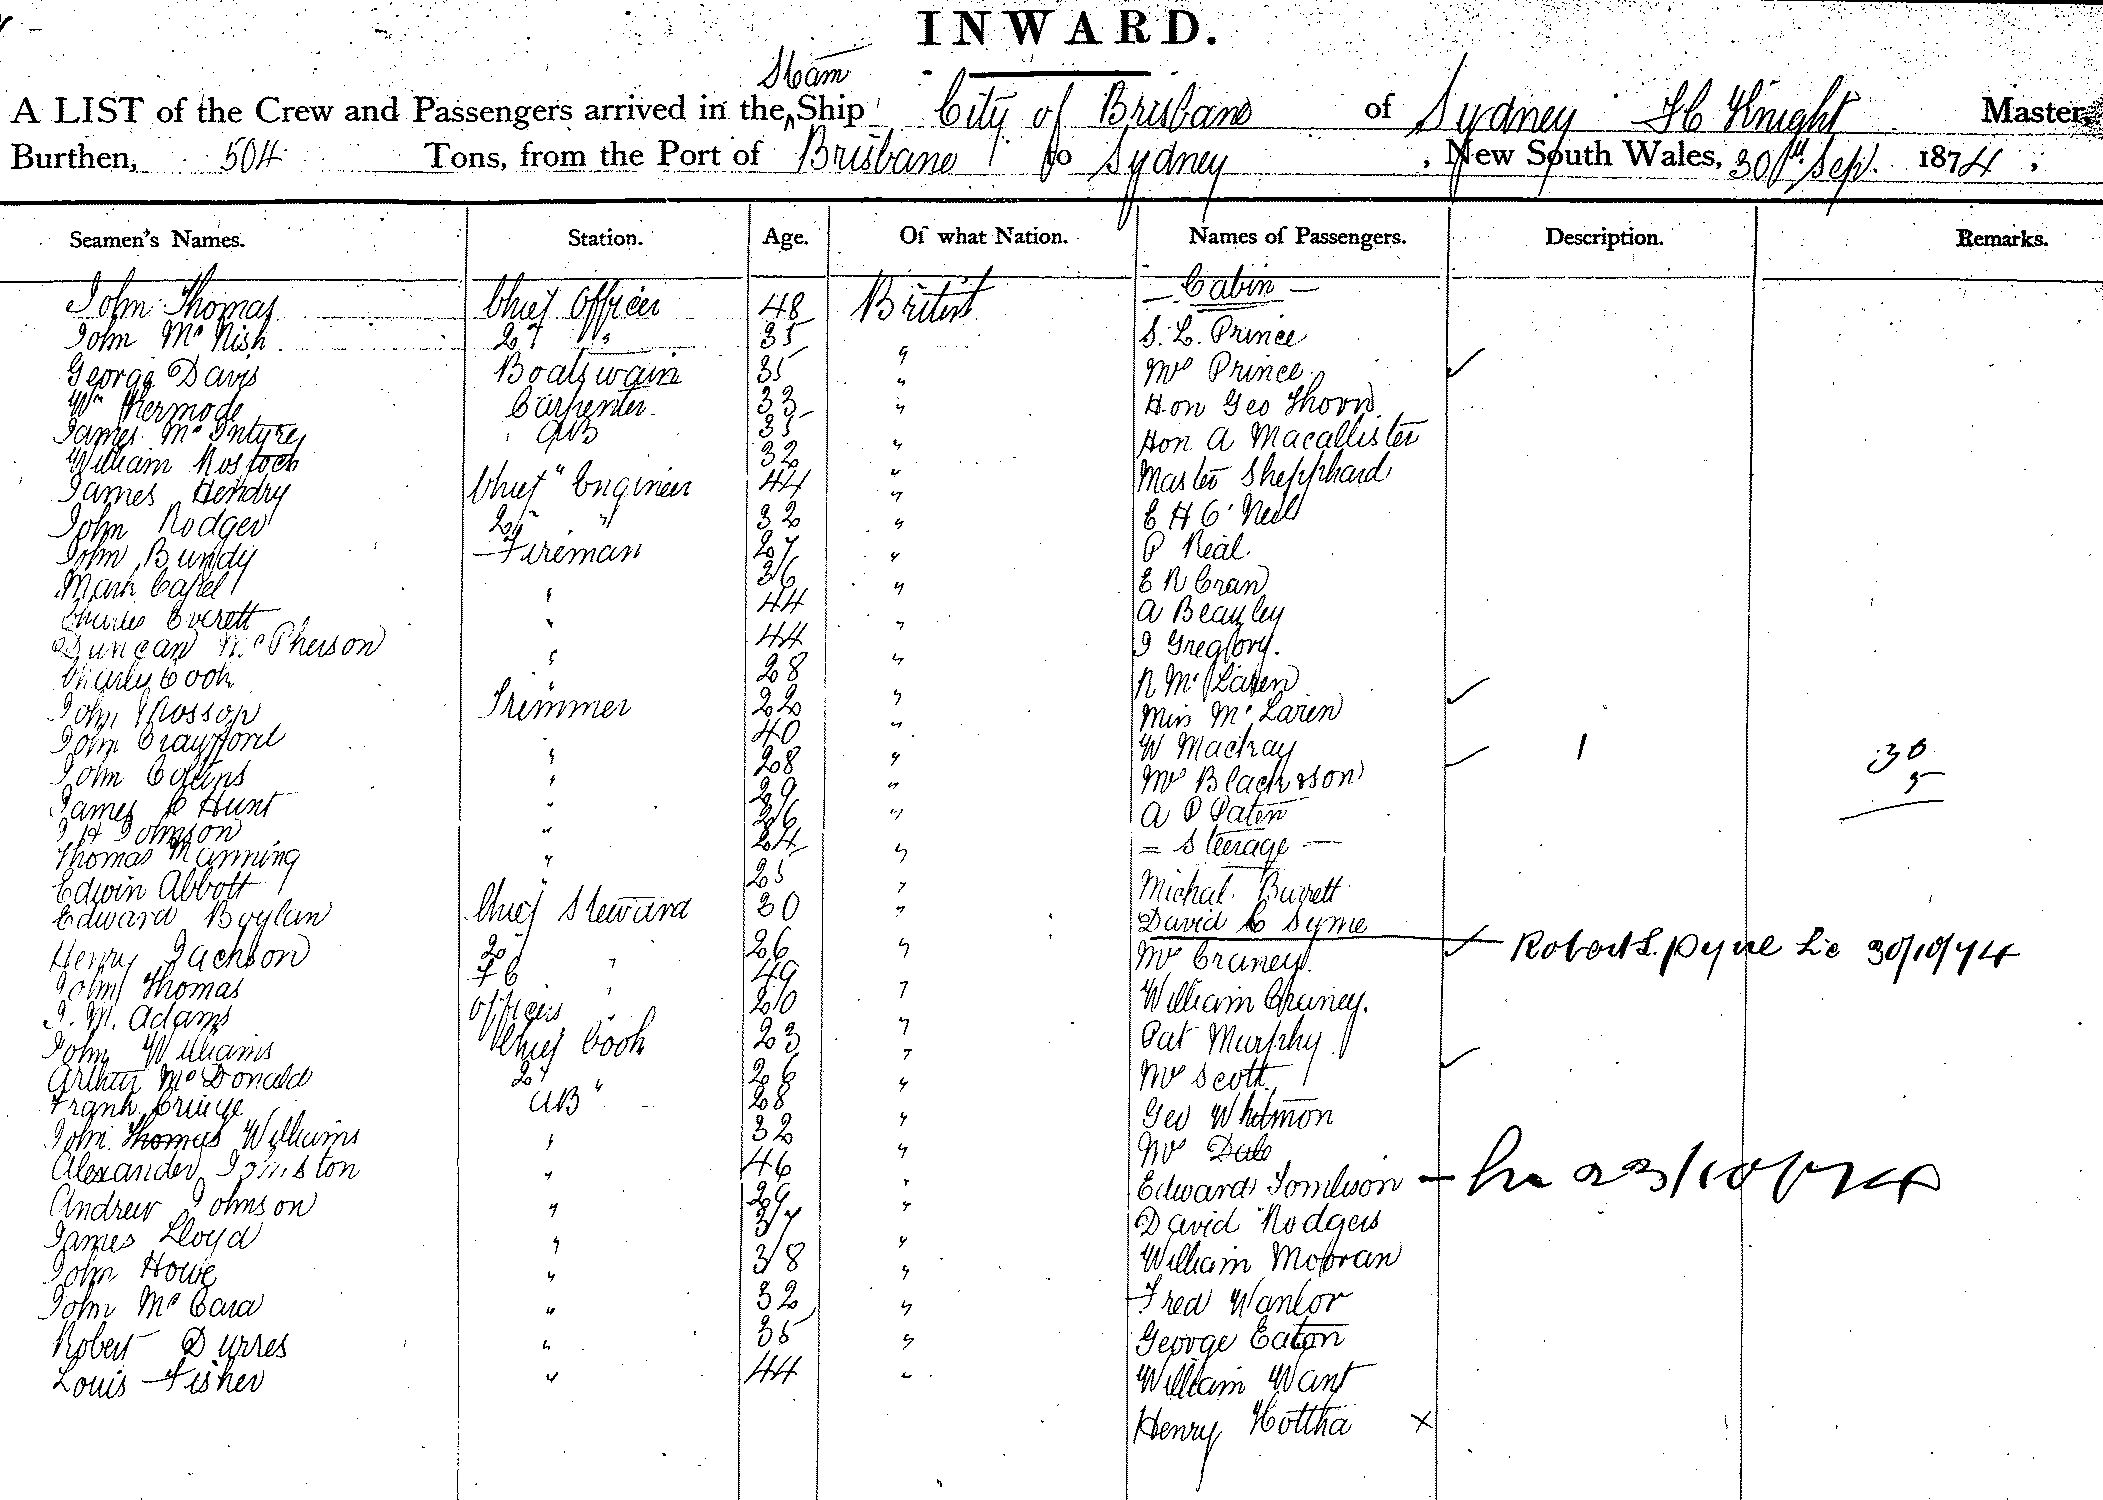 INWARD.
Steam
A LIST of the Crew and Passengers arrived in the ^ Ship City of Brisbane of Sydney H Knight Master,
Burthen, 504 Tons, from the Port of Brisbane to Sydney , New South Wales, 30th Sep. 1874 ,
Seamen's Names. Station. Age. Of what Nation. Names of Passengers. Description. Remarks.
— Cabin —
John Thomas Chief Officer 48 British
John Mc Nish 2d " 35 " S. L. Prince
George Davis Boatswain 35 " Mrs Prince ✓
Wm Kermode Carpenter 33 " Hon Geo Thorn
James Mc Intyre AB 35 " Hon A Macallister
William Rostock " 32 " Master Shepphard
James Hendry Chief Engineer 44 " E H O'Neil
John Rodger 2d " 32 " P Real
John Bundy Fireman 27 " E R Cran
Mark Capel " 36 " A Beazley
Charles Everett " 44 " J Gregory.
Duncan McPherson " 44 " R Mc Laren
Charles Cook " 28 " Miss Mc Laren ✓
John Mossop Trimmer 22 " W Mackay
John Crayford " 40 " Mrs Blackson ✓ 1 30
John Collins " 28 " A P Paten 5
James C Hunt " 29 " = Steerage —
J H Johnson " 26 " Michal Burett
Thomas Manning " 24 " David C Syme
Edwin Abbott " 25 " Mrs Craney ✓ Robert L. Pyne Lic 30/10/74
Edward Boylan Chief Steward 30 " William Craney.
Henry Jackson 2d " 26 " Pat Murphy
John Thomas " 49 " Mrs Scott ✓
J. M. Adams Officers " 20 " Geo Whitmon
John Williams Chief Cook 23 " Dale
Arthur McDonald 2d " 26 " Edward Tomlison — 23/10/74
Frank AB 28 " David Rodgers
John Thomas Williams " 32 " William Mooran
Alexander Johnston " 46 " Fred Wanlor
Andrew Johnson " 29 " George Eaton
James Lloyd " 37 " William Want
John Howe " 38 " Henry Hottha ×
John Mc Cara " 32 "
Robert Durres " 35 "
Louis Fisher " 44 "